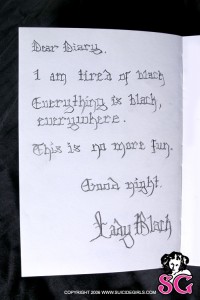 Dear Diary.
I am tired of black
Everything is black,
everywhere.
This is no more fun.
Good night.
Lady Black
SG
COPYRIGHT 2006 WWW.SUICIDEGIRLS.COM